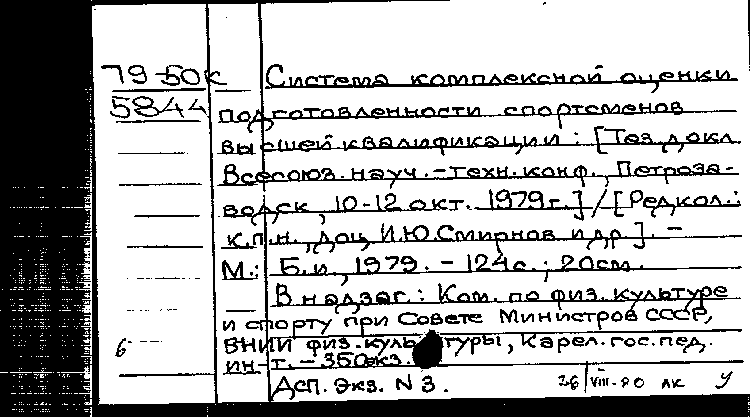 79-50к Система комплексной оценки
5844 подготовленности спортсменов
высшей квалификации: [Тез. докл.
Всесоюз. науч.-техн. конф., Петроза-
водск, 10-12 окт. 1979 г.] / [Редкол.:
к.п.н., доц. И.Ю. Смирнов и др.]. -
М.: Б.и., 1979. - 124 с.; 20 см.
В надзаг.: Ком. по физ. культуре
и спорту при Совете Министров СССР,
6 ВНИИ физ. культуры, Карел. гос. пед.
ин-т. - 350 экз.
Деп. экз. N 3. 26/VIII-80 лк У